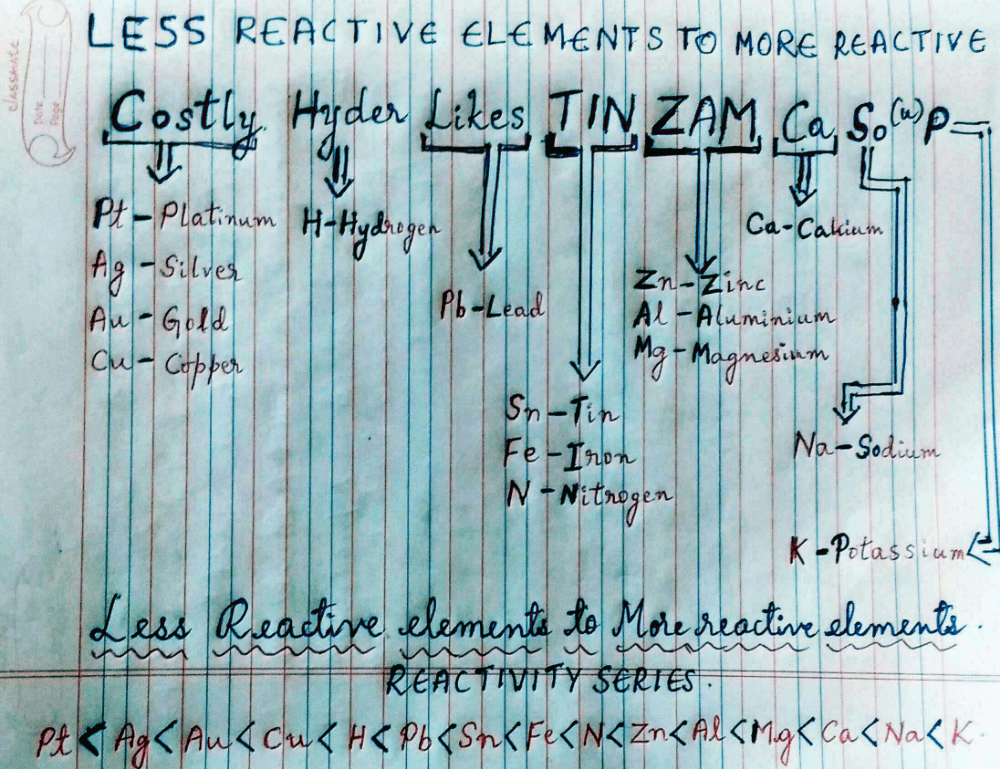 classmate
Date
Page
LESS REACTIVE ELEMENTS TO MORE REACTIVE
Costly Hyder Likes TIN ZAM Ca So(u)P
Pt - Platinum
Ag - Silver
Au - Gold
Cu - Copper
H - Hydrogen
Pb - Lead
Sn - Tin
Fe - Iron
N - Nitrogen
Zn - Zinc
Al - Aluminium
Mg - Magnesium
Ca - Calcium
Na - Sodium
K - Potassium
Less Reactive elements to More reactive elements.
REACTIVITY SERIES.
Pt < Ag < Au < Cu < H < Pb < Sn < Fe < N < Zn < Al < Mg < Ca < Na < K.